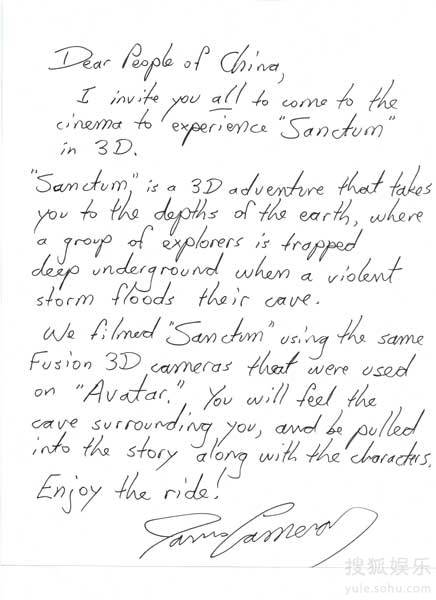 Dear People of China,
I invite you all to come to the
cinema to experience "Sanctum"
in 3D.
"Sanctum," is a 3D adventure that takes
you to the depths of the earth, where
a group of explorers is trapped
deep underground when a violent
storm floods their cave.
We filmed "Sanctum" using the same
Fusion 3D cameras that were used
on "Avatar." You will feel the
cave surrounding you, and be pulled
into the story along with the characters.
Enjoy the ride!
James Cameron
搜狐娱乐
yule.sohu.com